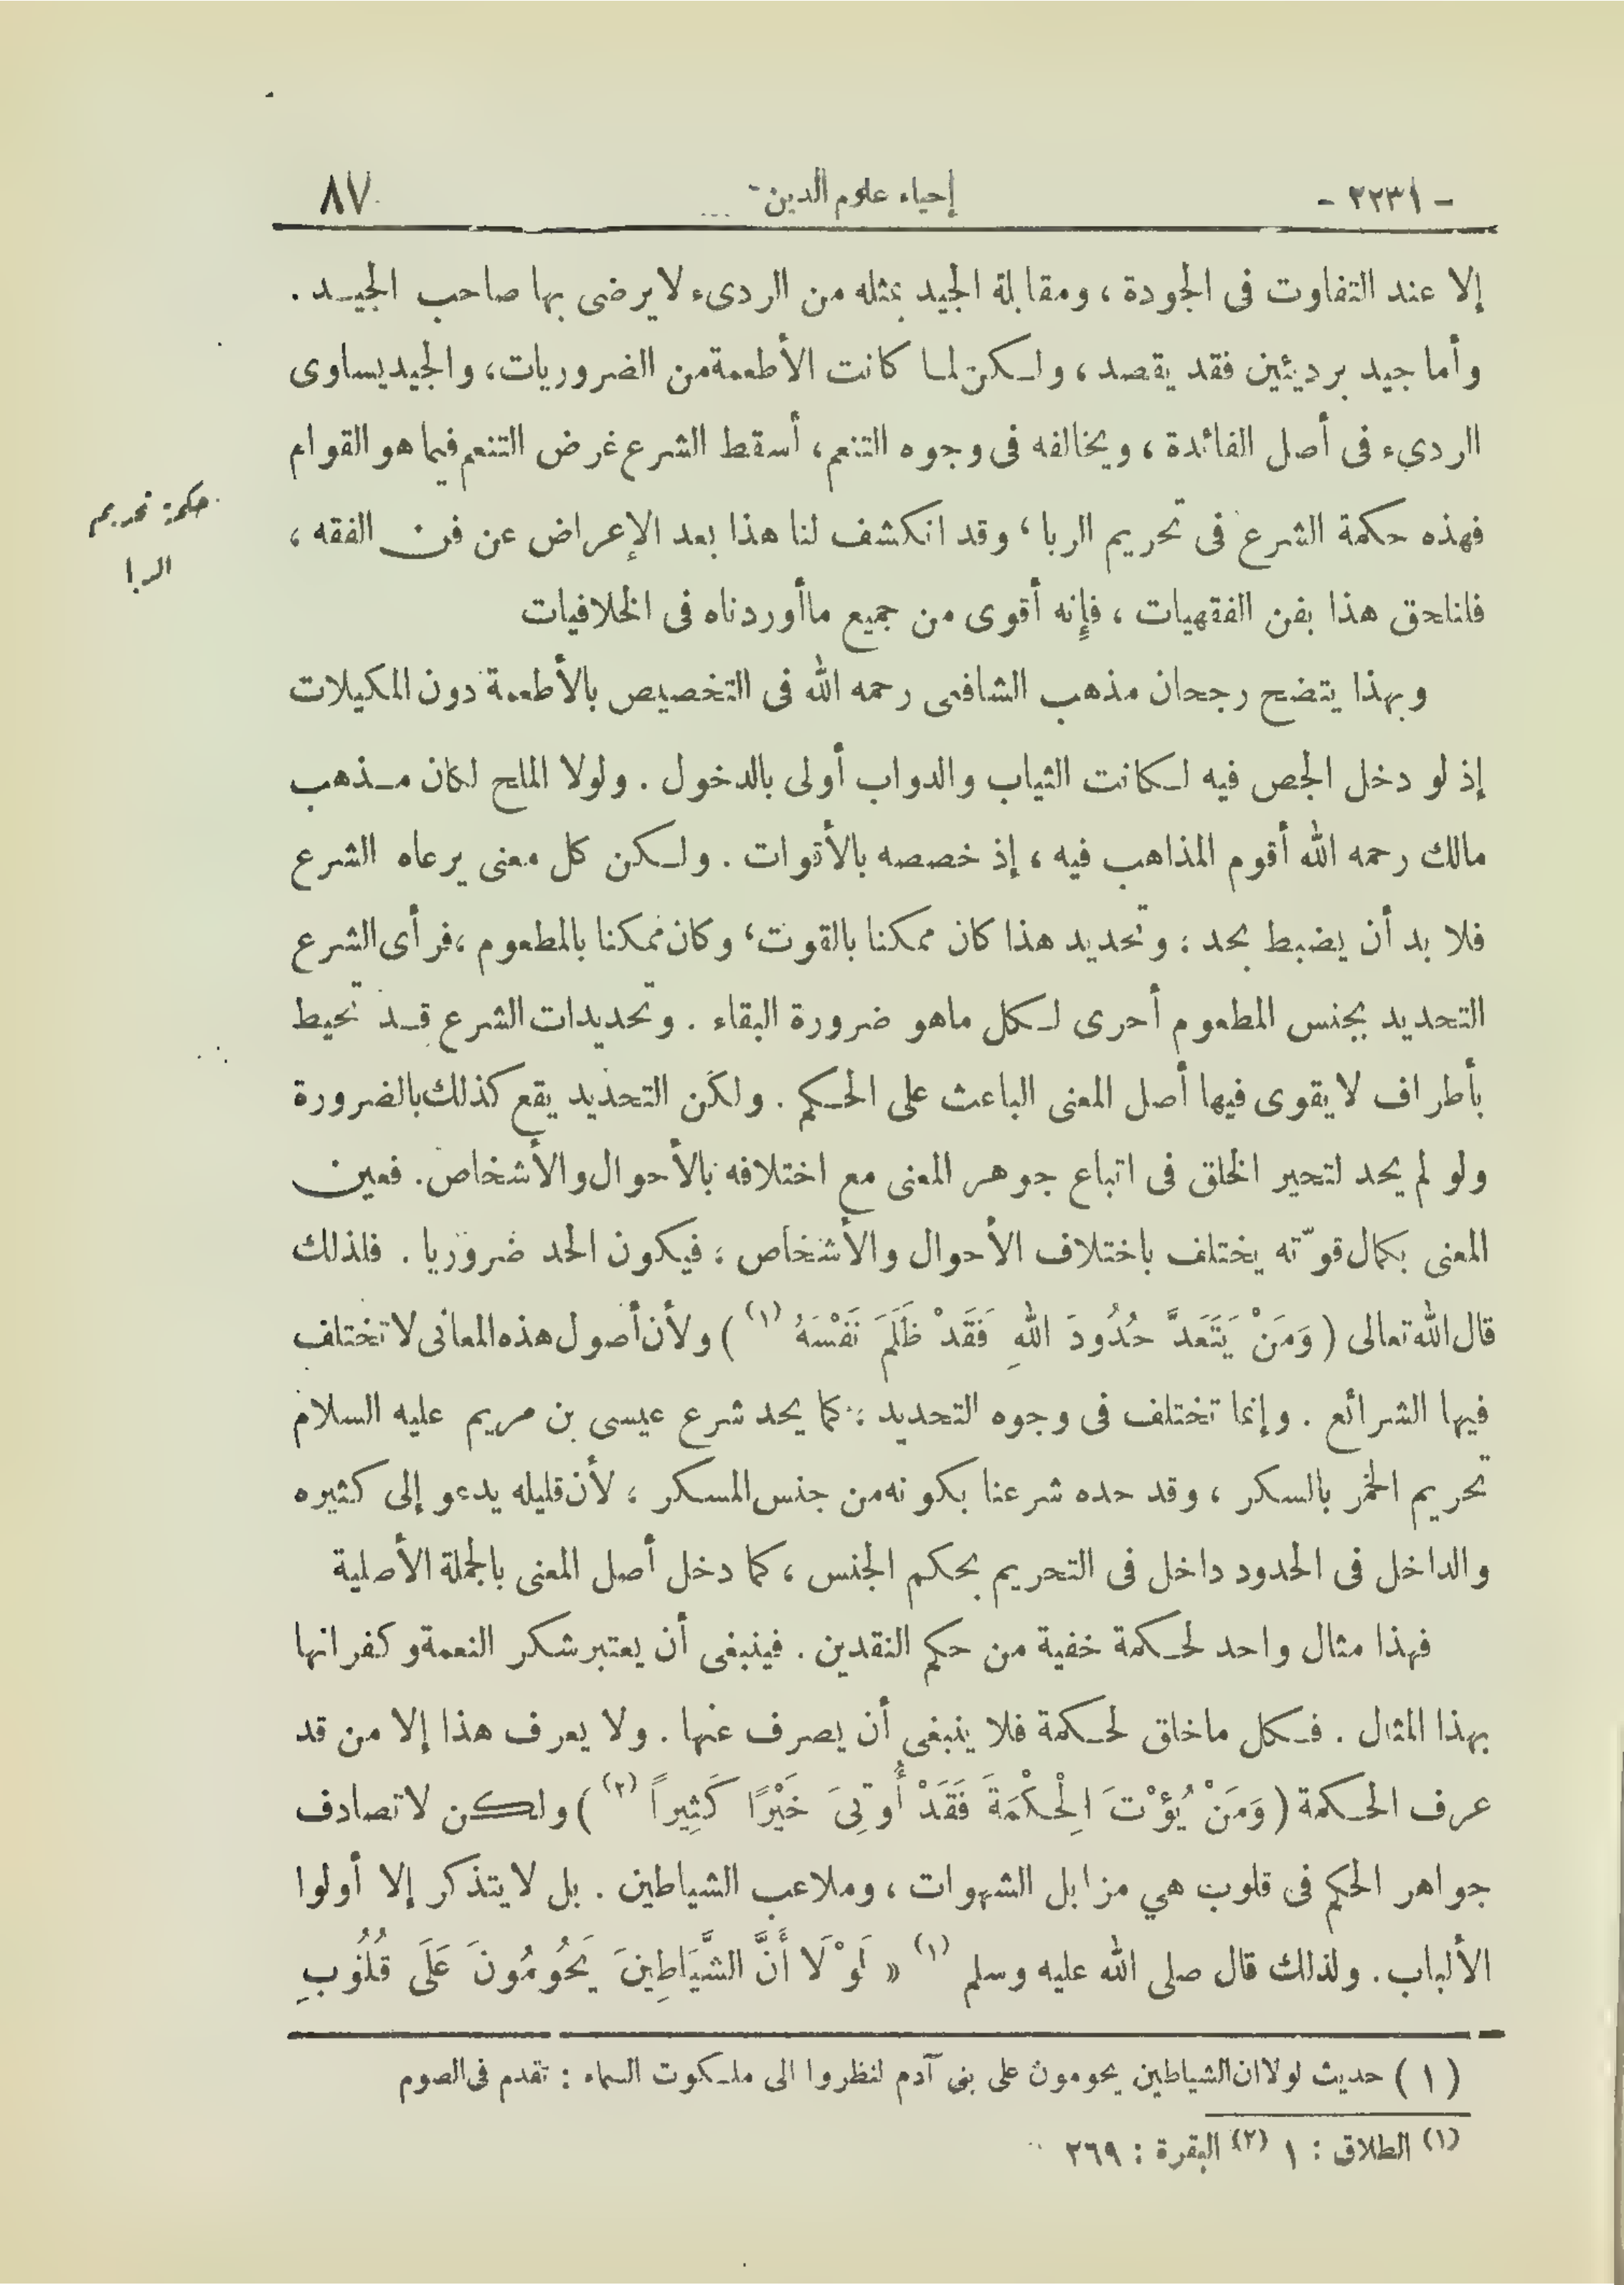 - ٢٢٣١ - إحياء علوم الدين ٨٧
إلا عند التفاوت فى الجودة ، ومقابلة الجيد بمثله من الردىء لا يرضى بها صاحب الجيد .
وأما جيد برديئين فقد يقصد ، ولكن لما كانت الأطعمة من الضروريات ، والجيد يساوى
الردىء فى أصل الفائدة ، ويخالفه فى وجوه التنعم ، أسقط الشرع غرض التنعم فيما هو القوام
حكمة تحريم
الربا
فهذه حكمة الشرع فى تحريم الربا ، وقد انكشف لنا هذا بعد الإعراض عن فن الفقه ،
فلنلحق هذا بفن الفقهيات ، فإنه أقوى من جميع ماأوردناه فى الخلافيات
وبهذا يتضح رجحان مذهب الشافعى رحمه الله فى التخصيص بالأطعمة دون المكيلات
إذ لو دخل الجص فيه لكانت الثياب والدواب أولى بالدخول . ولولا الملح لكان مذهب
مالك رحمه الله أقوم المذاهب فيه ، إذ خصصه بالأقوات . ولكن كل معنى يرعاه الشرع
فلا بد أن يضبط بحد ؛ وتحديد هذا كان ممكنا بالقوت ، وكان ممكنا بالمطعوم ، فرأى الشرع
التحديد بجنس المطعوم أحرى لكل ماهو ضرورة البقاء . وتحديدات الشرع قد تحيط
بأطراف لا يقوى فيها أصل المعنى الباعث على الحكم . ولكن التحديد يقع كذلك بالضرورة
ولو لم يحد لتحير الخلق فى اتباع جوهر المعنى مع اختلافه بالأحوال والأشخاص . فعين
المعنى بكمال قوّته يختلف باختلاف الأحوال والأشخاص ، فيكون الحد ضروريا . فلذلك
قال الله تعالى ( وَمَنْ يَتَعَدَّ حُدُودَ اللهِ فَقَدْ ظَلَمَ نَفْسَهُ (١) ) ولأن أصول هذه المعانى لا تختلف
فيها الشرائع . وإنما تختلف فى وجوه التحديد ؛ كما يحد شرع عيسى بن مريم عليه السلام
تحريم الخمر بالسكر ، وقد حده شرعنا بكونه من جنس المسكر ، لأن قليله يدعو إلى كثيره
والداخل فى الحدود داخل فى التحريم بحكم الجنس ، كما دخل أصل المعنى بالجملة الأصلية
فهذا مثال واحد لحكمة خفية من حكم النقدين . فينبغى أن يعتبر شكر النعمة وكفرانها
بهذا المثال . فكل ماخلق لحكمة فلا ينبغى أن يصرف عنها . ولا يعرف هذا إلا من قد
عرف الحكمة ( وَمَنْ يُؤْتَ الْحِكْمَةَ فَقَدْ أُوتِىَ خَيْرًا كَثِيراً (٢) ) ولكن لا تصادف
جواهر الحكم فى قلوب هي مزابل الشهوات ، وملاعب الشياطين . بل لا يتذكر إلا أولوا
الألباب . ولذلك قال صلى الله عليه وسلم (١) « لَوْلَا أَنَّ الشَّيَاطِينَ يَحُومُونَ عَلَى قُلُوبِ
( ١ ) حديث لولا ان الشياطين يحومون على بنى آدم لنظروا الى ملكوت السماء : تقدم فى الصوم
(١) الطلاق : ١ (٢) البقرة : ٢٦٩